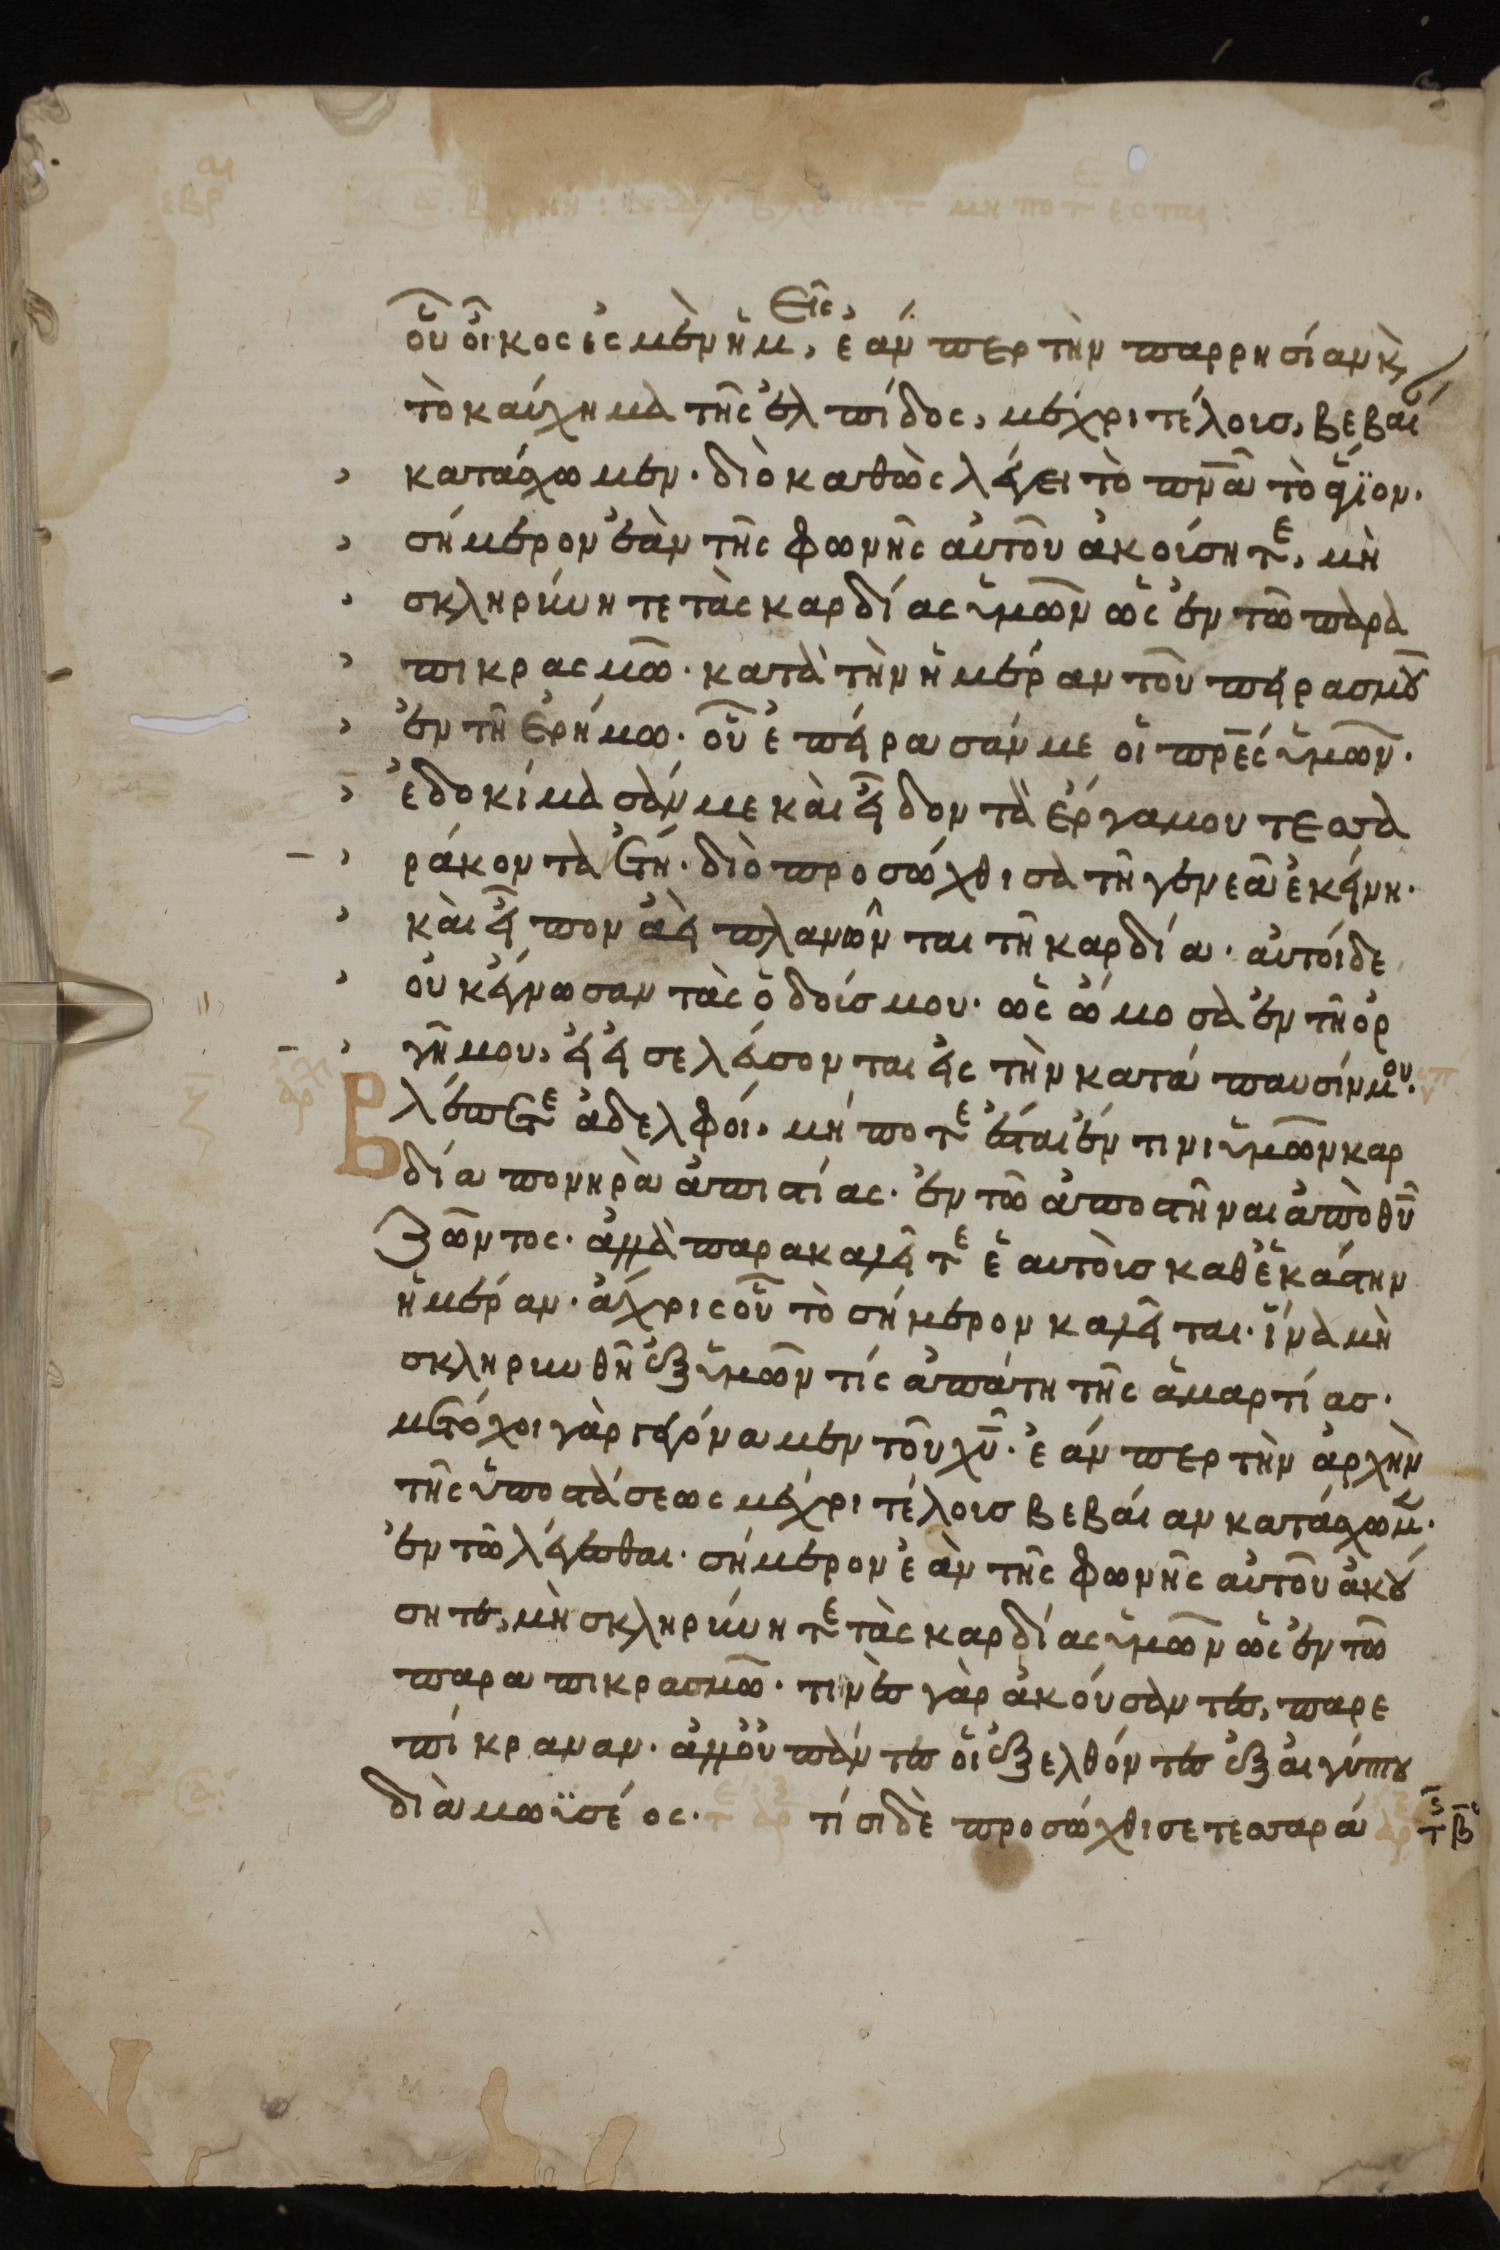 οὗ οἶκος ἐσμὲν ἡμεῖς, ἐάνπερ τὴν παρρησίαν κὶ
τὸ καύχημα τῆς ἐλπίδος, μέχρι τέλους, βεβαί
κατάσχωμεν. διὸ καθὼς λέγει τὸ πνᾶ τὸ ἅγϊον.
σήμερον ἐὰν τῆς φωνῆς αὐτοῦ ἀκούσητε, μὴ
σκληρύνητε τὰς καρδίας ὑμῶν ὡς ἐν τῶ παρα
πικρασμῶ. κατὰ τὴν ἡμέραν τοῦ πειρασμοῦ
ἐν τῆ ἐρήμω. οὗ ἐπείρασάν με οἱ πρες ὑμῶν.
ἐδοκίμασάν με καὶ εἶδον τὰ ἔργα μου τεσσα
ράκοντα ἔτη. διὸ προσώχθισα τῆ γενεᾶ ἐκείνη.
καὶ εἶπον ἀεὶ πλανῶνται τῆ καρδία. αὐτοὶ δε
οὐκ ἔγνωσαν τὰς ὁδούς μου. ὡς ὤμοσα ἐν τῆ ὀρ
γῆ μου, εἰ εἰσελεύσονται εἰς τὴν κατάπαυσίν μου.
Βλέπετε ἀδελφοί, μήποτε ἔσται ἔν τινι ὑμῶν καρ
δία πονηρὰ ἀπιστίας. ἐν τῶ ἀποστῆναι ἀπὸ θῦ
ζῶντος. ἀλλὰ παρακαλεῖτε ἑαυτοὺς καθ' ἑκάστην
ἡμέραν. ἄχρις οὗ τὸ σήμερον καλεῖται. ἵνα μὴ
σκληρυνθῆ ἐξ ὑμῶν τίς ἀπάτη τῆς ἁμαρτίας.
μέτοχοι γὰρ γεγόναμεν τοῦ χῦ. ἐάνπερ τὴν ἀρχὴν
τῆς ὑποστάσεως μέχρι τέλους βεβαίαν κατάσχωμεν.
ἐν τῶ λέγεσθαι. σήμερον ἐὰν τῆς φωνῆς αὐτοῦ ἀκού
σητε, μὴ σκληρύνητε τὰς καρδίας ὑμῶν ὡς ἐν τῶ
παραπικρασμῶ. τινὲς γὰρ ἀκούσαντες, παρε
πίκραναν. ἀλλ' οὐ πάντες οἱ ἐξελθόντες ἐξ αἰγύπτου
διὰ μωϋσέος. τίσι δὲ προσώχθισε τεσσαρά